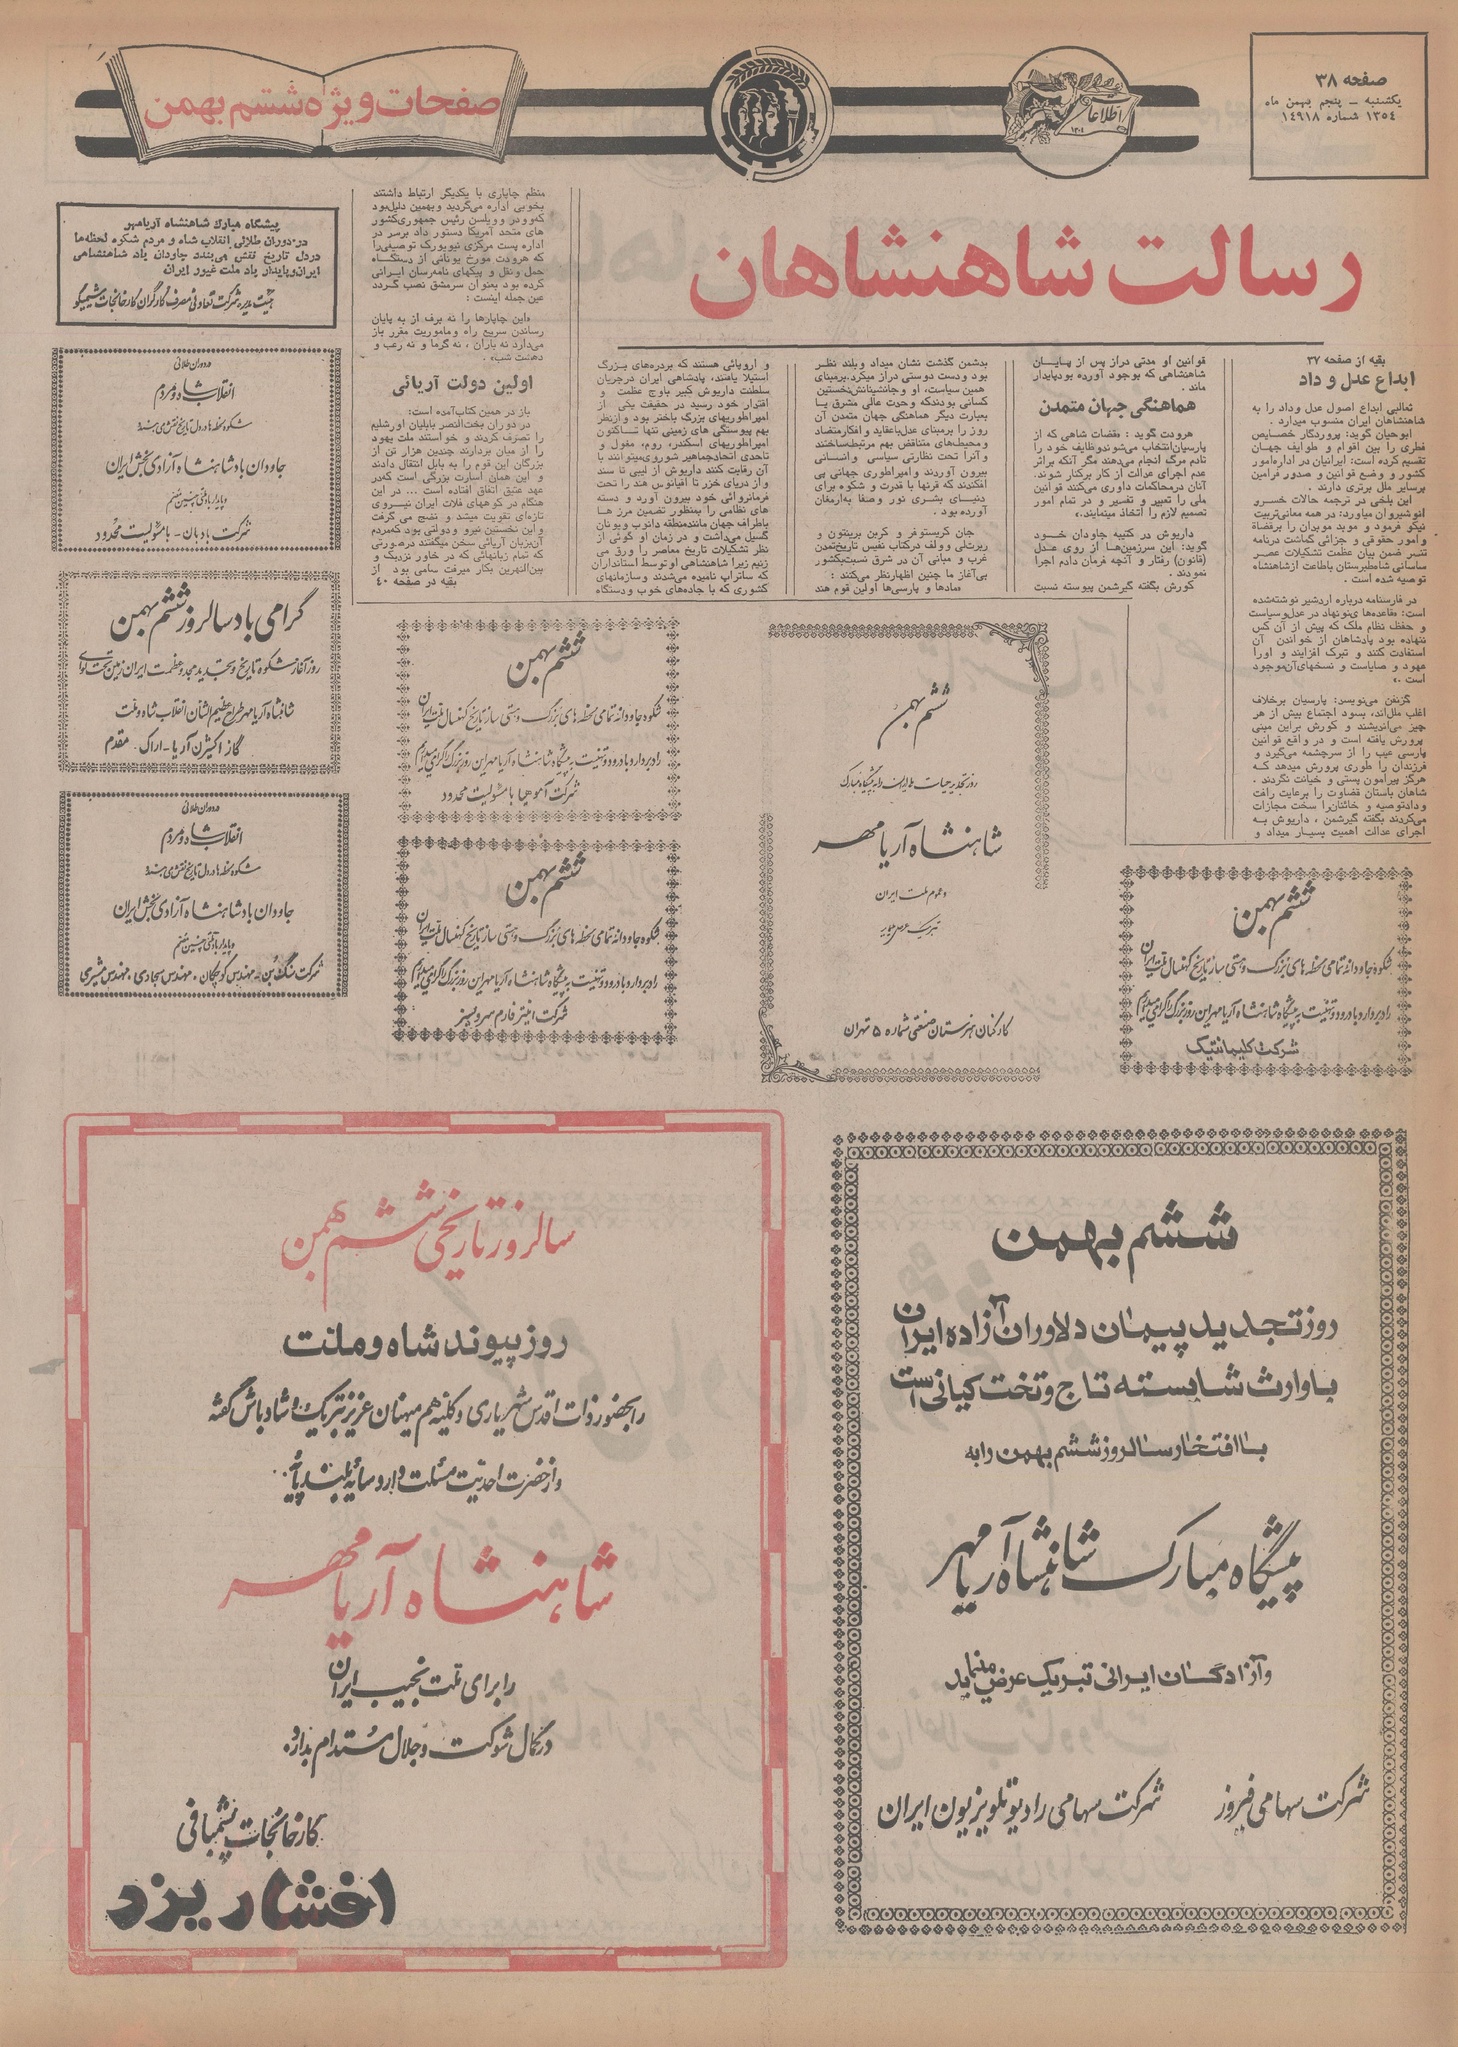 صفحه ۳۸
یکشنبه – پنجم بهمن ماه
۱۳۵۴ شماره ۱۴۹۱۸
اطلاعات
صفحات ویژه ششم بهمن
رسالت شاهنشاهان
بقیه از صفحه ۳۷
ابداع عدل و داد
ثعالبی ابداع اصول عدل وداد را به
شاهنشاهان ایران منسوب میدارد .
ابوحیان گوید: پروردگار خصایص
فطری را بین اقوام و طوایف جهان
تقسیم کرده است: ایرانیان در اداره‌امور
کشور و وضع قوانین و صدور فرامین
برسایر ملل برتری دارند .
ابن بلخی در ترجمه حالات خسرو
انوشیروان میاورد: در همه معانی‌تربیت
نیکو فرمود و موبد موبدان را برقضاة
وامور حقوقی و جزائی گماشت درنامه
تنسر ضمن بیان عظمت تشکیلات عصر
ساسانی شاه‌طبرستان باطاعت ازشاهنشاه
توصیه شده است .
در فارسنامه درباره اردشیر نوشته‌شده
است: «قاعده‌ها ی‌نونهاد در عدل‌وسیاست
و حفظ نظام ملک که پیش از آن کس
ننهاده بود پادشاهان از خواندن آن
استفادت کنند و تبرک افزایند و اورا
عهود و صایاست و نسخهای‌آن‌موجود
است .»
گزنفن می‌نویسد: پارسیان برخلاف
اغلب ملل‌اند، بسود اجتماع بیش از هر
چیز می‌اندیشند و کورش براین مبنی
پرورش یافته است و در واقع قوانین
پارسی عیب را از سرچشمه می‌گیرد و
فرزندان را طوری پرورش میدهد که
هرگز پیرامون پستی و خیانت نگردند .
شاهان باستان قضاوت را برعایت رافت
ودادتوصیه و خائنان‌را سخت مجازات
می‌کردند بگفته گیرشمن ، داریوش به
اجرای عدالت اهمیت بسیار میداد و
قوانین او مدتی دراز پس از پایان
شاهنشاهی که بوجود آورده بودپایدار
ماند .
هماهنگی جهان متمدن
هرودت گوید : «قضات شاهی که از
پارسیان‌انتخاب می‌شوندوظایف خود را
تادم مرگ انجام می‌دهند مگر آنکه براثر
عدم اجرای عدالت از کار برکنار شوند.
آنان درمحاکمات داوری می‌کنند قوانین
ملی را تعبیر و تفسیر و در تمام امور
تصمیم لازم را اتخاذ مینمایند.»
داریوش در کتیبه جاودان خود
گوید: این سرزمین‌ها از روی عدل
(قانون) رفتار و آنچه فرمان دادم اجرا
نمودند .
کورش بگفته گیرشمن پیوسته نسبت
بدشمن گذشت نشان میداد وبلند نظر
بود ودست دوستی دراز میکرد.برمبنای
همین سیاست، او وجانشینانش‌نخستین
کسانی بودندکه وحدت عالی مشرق یا
بعبارت دیگر هماهنگی جهان متمدن آن
روز را برمبنای عدل‌باعقاید وافکارمتضاد
ومحیط‌های متناقض بهم مرتبط‌ساختند
وآنرا تحت نظارتی سیاسی وانسانی
بیرون آوردند وامپراطوری جهانی پی
افکندند که قرنها با قدرت و شکوه برای
دنیای بشری نور وصفا به‌ارمغان
آورده بود .
جان کریستوفر و کربن برینتون و
ربرت‌لی وولف درکتاب نفیس تاریخ‌تمدن
غرب و مبانی آن در شرق نسبت‌بکشور
بی‌آغاز ما چنین اظهارنظر می‌کنند :
«مادها و پارسی‌ها اولین قوم هند
و اروپائی هستند که بردره‌های بزرگ
استیلا یافتند، پادشاهی ایران درجریان
سلطنت داریوش کبیر باوج عظمت و
اقتدار خود رسید در حقیقت یکی از
امپراطوریهای بزرگ باختر بود وازنظر
بهم پیوستگی های زمینی تنها تاکنون
امپراطوریهای اسکندر، روم، مغول و
تاحدی اتحادجماهیر شوروی‌میتوانند با
آن رقابت کنند داریوش از لیبی تا سند
واز دریای خزر تا اقیانوس هند را تحت
فرمانروائی خود بیرون آورد و دسته
های نظامی را بمنظور تضمین مرز ها
باطراف جهان مانندمنطقه دانوب ویونان
گسیل می‌داشت و در زمان او گوئی از
نظر تشکیلات تاریخ معاصر را ورق می
زنیم زیرا شاهنشاهی اوتوسط استانداران
که ساتراپ نامیده می‌شدند وسازمانهای
کشوری که با جاده‌های خوب ودستگاه
منظم چاپاری با یکدیگر ارتباط داشتند
بخوبی اداره می‌گردید وبهمین دلیل‌بود
که‌وودر وویلسن رئیس جمهوری‌کشور
های متحد آمریکا دستور داد برسر در
اداره پست مرکزی نیویورک توصیفی‌را
که هرودت مورخ یونانی از دستگاه
حمل ونقل و پیکهای نامه‌رسان ایرانی
کرده بود بعنوان سرمشق نصب گردد
عین جمله اینست :
«این چاپارها را نه برف از به پایان
رساندن سریع راه وماموریت مقرر باز
می‌دارد نه باران ، نه گرما و نه رعب و
دهشت شب» .
اولین دولت آریائی
باز در همین کتاب‌آمده است:
در دوران بخت‌النصر بابلیان اورشلیم
را تصرف کردند و خواستند ملت یهود
را از میان بردارند چندین هزار تن از
بزرگان این قوم را به بابل انتقال دادند
و این همان اسارت بزرگی است که‌در
عهد عتیق اتفاق افتاده است ... در این
هنگام در کوههای فلات ایران نیروی
تازه‌ای تقویت میشد و نضج می گرفت
واین نخستین نیرو ودولتی بود که‌مردم
آن‌بزبان آریائی سخن میگفتند درصورتی
که تمام زبانهائی که در خاور نزدیک و
بین‌النهرین بکار میرفت سامی بود از
بقیه در صفحه ۴۰
پیشگاه مبارک شاهنشاه آریامهر
در دوران طلائی انقلاب شاه و مردم شکوه لحظه‌ها
دردل تاریخ نقش می‌بندد جاودان باد شاهنشاهی
ایران‌وپایدار باد ملت غیور ایران
هیئت مدیره شرکت تعاونی مصرف کارگران کارخانجات شیمیکو
در دوران طلائی
انقلاب شاه و مردم
شکوه لحظه‌ها در دل تاریخ نقش می‌بندد
جاودان باد شاهنشاه آزادی بخش ایران
و پایدار باد ملتی چنین مصمم
شرکت بادبان - با مسئولیت محدود
گرامی باد سالروز ششم بهمن
روز آغاز شکوه تاریخ و تجدید مجد و عظمت ایران زمین تحت لوای
شاهنشاه آریامهر طراح عظیم الشأن انقلاب شاه و ملت
گاز اکسیژن آریا - اراک . مقدم
در دوران طلائی
انقلاب شاه و مردم
شکوه لحظه‌ها در دل تاریخ نقش می‌بندد
جاودان باد شاهنشاه آزادی بخش ایران
و پایدار باد ملتی چنین مصمم
شرکت سنگ بُن - مهندس کوچکان ، مهندس سجادی ، مهندس مشیری
ششم بهمن
شکوه جاودانه تمامی لحظه‌های بزرگ و هستی ساز تاریخ کهنسال ملت ایران
را در بر دارد با درود و تهنیت به پیشگاه شاهنشاه آریامهر این روز بزرگ را گرامی میداریم
شرکت آموهیا با مسئولیت محدود
ششم بهمن
شکوه جاودانه تمامی لحظه‌های بزرگ و هستی ساز تاریخ کهنسال ملت ایران
را در بر دارد با درود و تهنیت به پیشگاه شاهنشاه آریامهر این روز بزرگ را گرامی میداریم
شرکت اینتر فارم سرویسز
ششم بهمن
روز تجدید حیات ملی ایران را به پیشگاه مبارک
شاهنشاه آریامهر
و عموم ملت ایران
تبریک عرض مینماید
کارکنان هنرستان صنعتی شماره ۵ تهران
ششم بهمن
شکوه جاودانه تمامی لحظه‌های بزرگ و هستی ساز تاریخ کهنسال ملت ایران
را در بر دارد با درود و تهنیت به پیشگاه شاهنشاه آریامهر این روز بزرگ را گرامی میداریم
شرکت کلیماتیک
ششم بهمن
روز تجدید پیمان دلاوران آزاده ایران
با وارث شایسته تاج و تخت کیانی است
با افتخار سالروز ششم بهمن را به
پیشگاه مبارک شاهنشاه آریامهر
و آزادگان ایرانی تبریک عرض مینماید
شرکت سهامی فیروز
شرکت سهامی رادیو تلویزیون ایران
سالروز تاریخی ششم بهمن
روز پیوند شاه و ملت
را بحضور ذات اقدس شهریاری و کلیه هم میهنان عزیز تبریک و شادباش گفته
و از حضرت احدیت مسئلت دارد سایه بلند پایه
شاهنشاه آریامهر
را برای ملت نجیب ایران
در کمال شوکت و جلال مستدام بدارد.
کارخانجات پشمبافی
افشار یزد